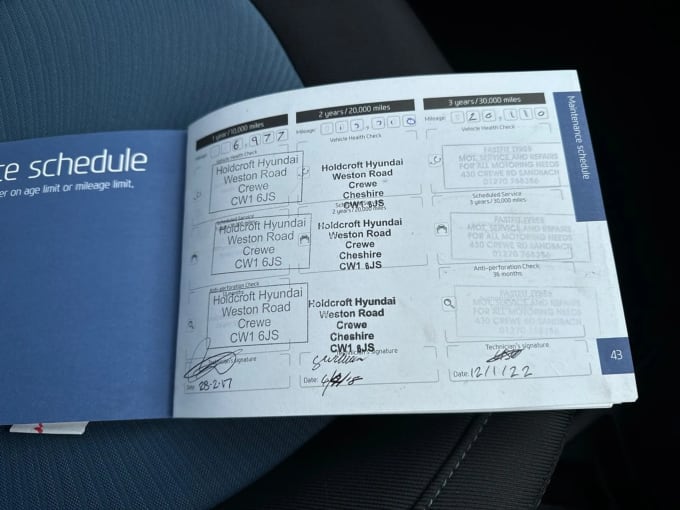 ce schedule
er on age limit or mileage limit,
1 year/10,000 miles
Mileage: 6,977
Vehicle Health Check
Holdcroft Hyundai
Weston Road
Crewe
CW1 6JS
Scheduled Service
Holdcroft Hyundai
Weston Road
Crewe
CW1 6JS
Anti-perforation Check
Holdcroft Hyundai
Weston Road
Crewe
CW1 6JS
Technician's signature
Date: 28-2-17
2 years/20,000 miles
Mileage:
Vehicle Health Check
Holdcroft Hyundai
Weston Road
Crewe
Cheshire
CW1 6JS
2 years/20,000 miles
Holdcroft Hyundai
Weston Road
Crewe
Cheshire
CW1 6JS
Holdcroft Hyundai
Weston Road
Crewe
Cheshire
CW1 6JS
Technician's signature
Date:
3 years/30,000 miles
Mileage: 20,110
Vehicle Health Check
FASTFIT TYRES
MOT, SERVICE AND REPAIRS
FOR ALL MOTORING NEEDS
430 CREWE RD SANDBACH
01270 768386
Scheduled Service
3 years/30,000 miles
FASTFIT TYRES
MOT, SERVICE AND REPAIRS
FOR ALL MOTORING NEEDS
430 CREWE RD SANDBACH
01270 768386
Anti-perforation Check
36 months
FASTFIT TYRES
MOT, SERVICE AND REPAIRS
FOR ALL MOTORING NEEDS
430 CREWE RD SANDBACH
01270 768386
Technician's signature
Date: 12/1/22
Maintenance schedule
43